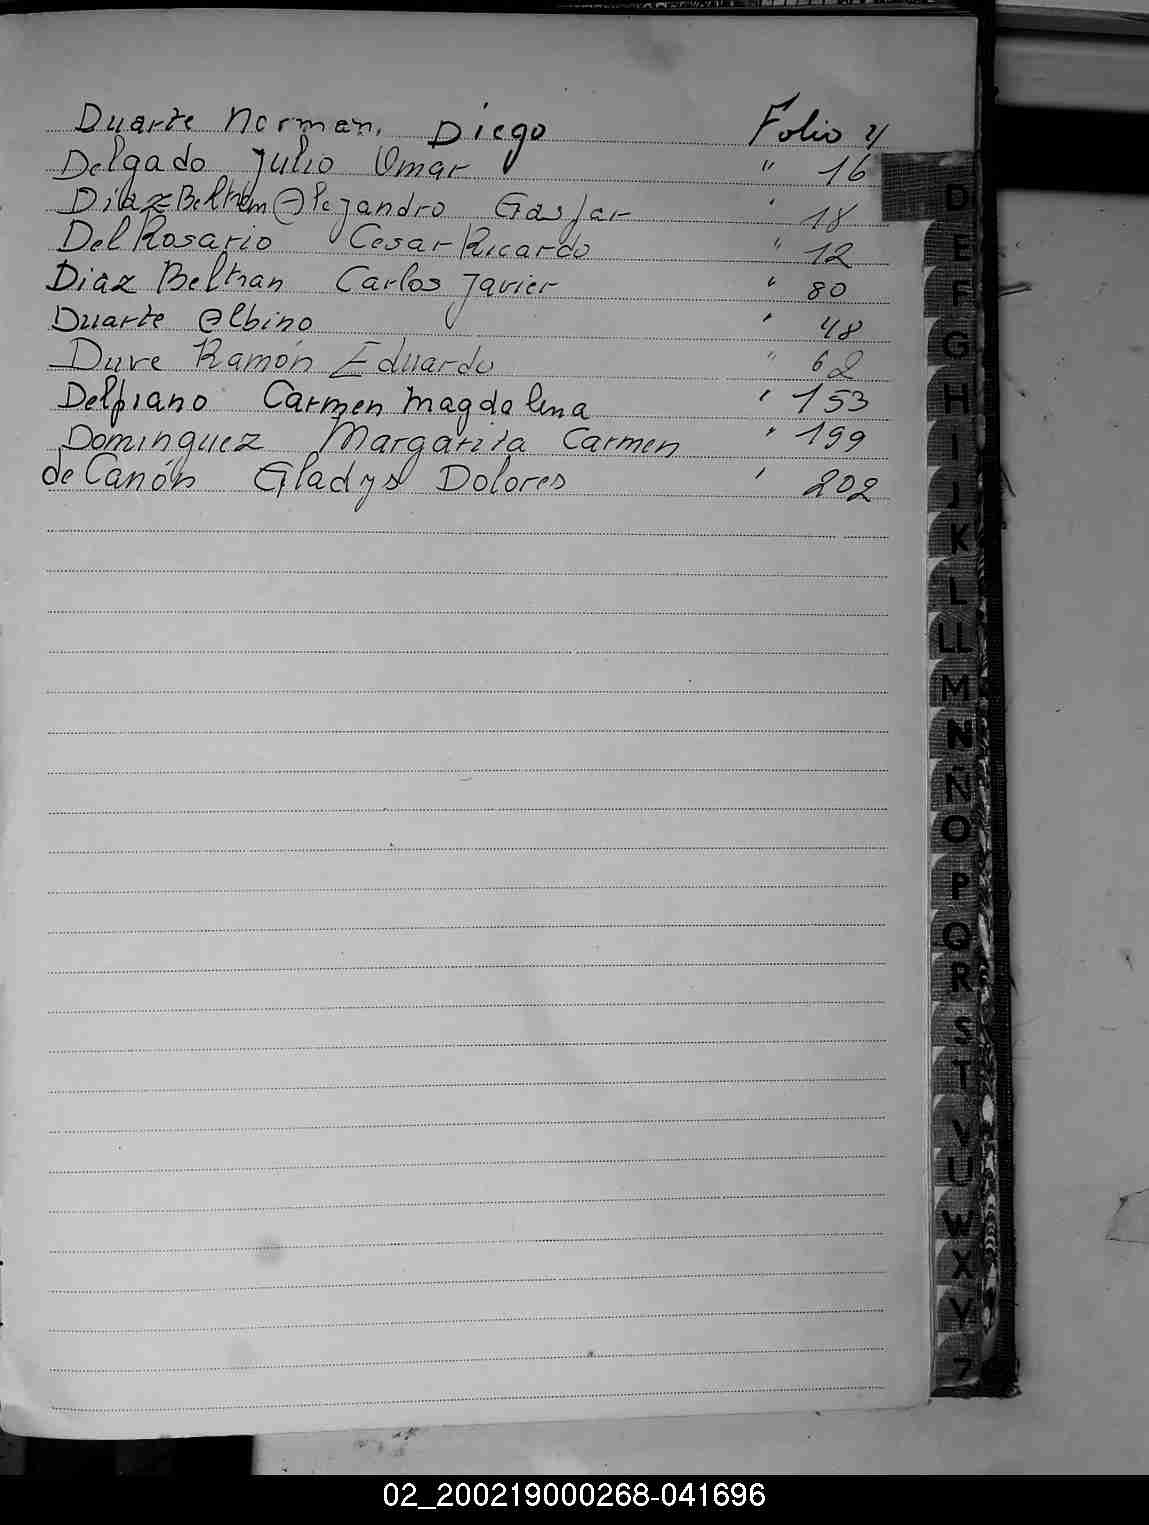 Duarte Norman, Diego Folio 4
Delgado Julio Omar " 16
Diaz Beltran Alejandro Gaspar " 18
Del Rosario Cesar Ricardo " 12
Diaz Beltran Carlos Javier " 80
Duarte Albino " 48
Duve Ramón Eduardo " 62
Delpiano Carmen Magdalena " 153
Dominguez Margarita Carmen " 199
de Canón Gladys Dolores " 202
D
E
F
G
H
I
J
K
L
LL
M
N
N
O
P
Q
R
S
T
V
U
W
X
Y
Z
02_200219000268-041696